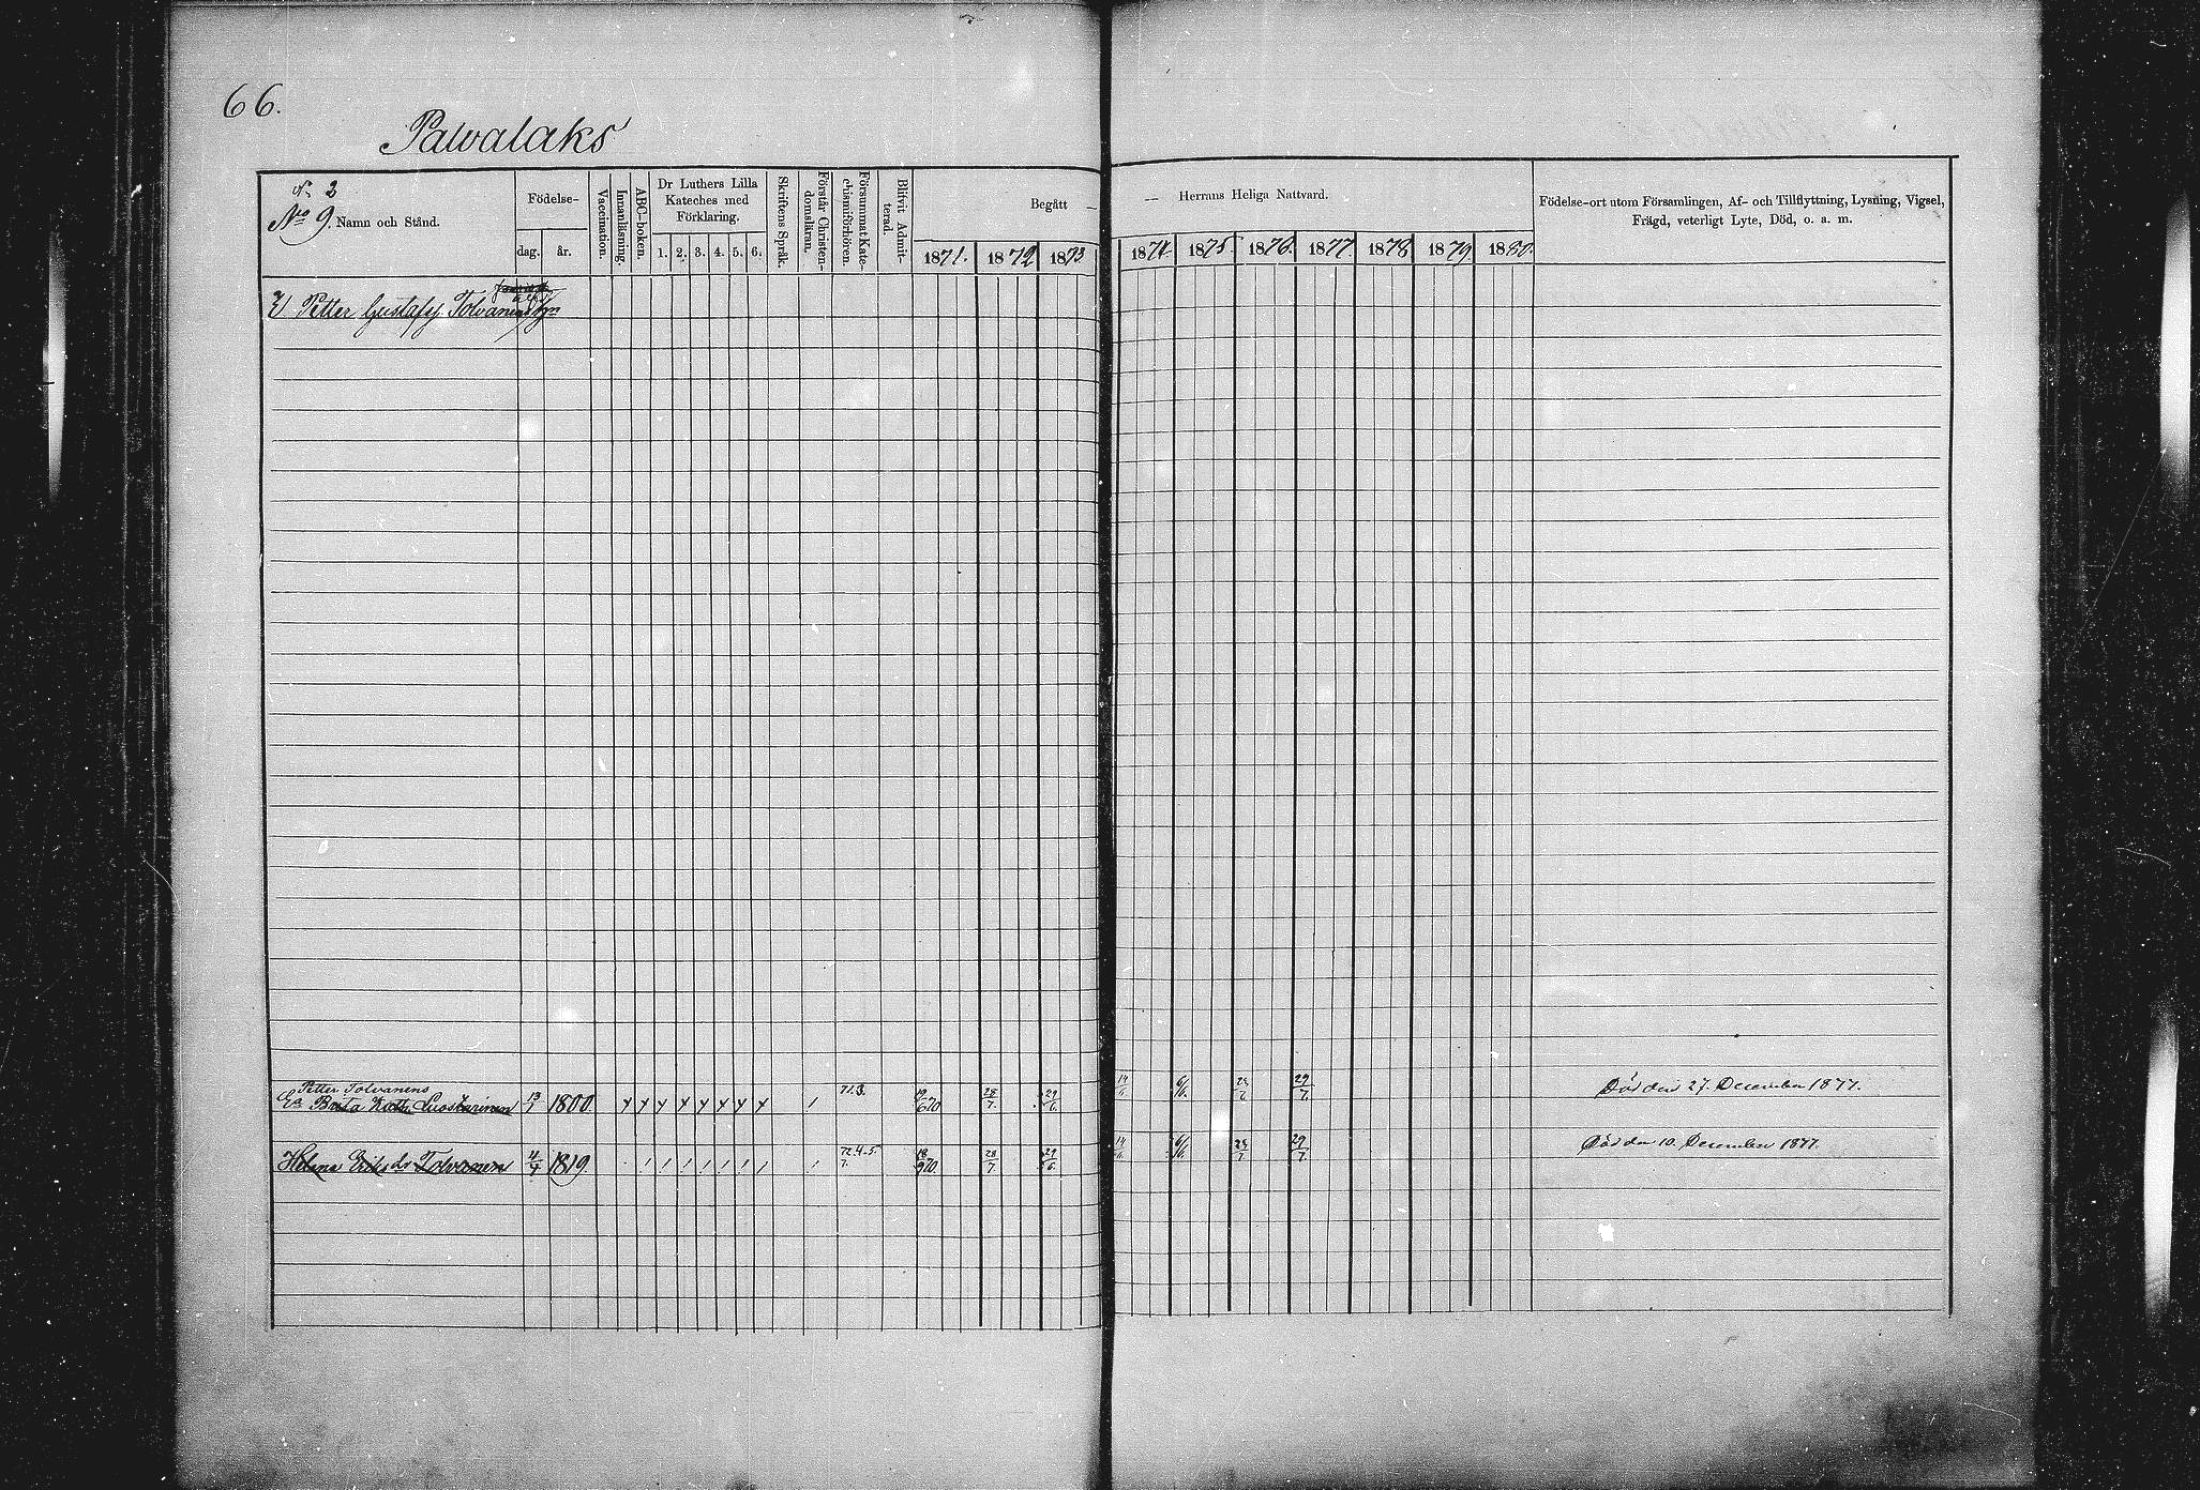 66.
Palvalaks
N. 2
No 9. Namn och Stånd.
Födelse-
dag. år.
Vaccination.
Innanläsning.
ABC-boken.
Dr Luthers Lilla
Kateches med
Förklaring.
1. 2. 3. 4. 5. 6.
Skriftens Språk.
Förstår Christen-
domsläran.
Försummat Kate-
chismiförhören.
Blifvit Admit-
terad.
Begått —
1871. 1872 1873
— Herrans Heliga Nattvard.
1874. 1875. 1876. 1877. 1878 1879. 1880.
Födelse-ort utom Församlingen, Af- och Tillflyttning, Lysning, Vigsel,
Frägd, veterligt Lyte, Död, o. a. m.
Petter Gustafsj. Tolvanens
Petter Tolvanens
Ea Brita Kath. Luostarinen 13/1 1800. 71.3. 19/6 70 28/7. 29/6. 14/6 6/6. 25/7 29/7. Död den 27. December 1877.
Helena Eriksdr Tolvanen 4/4 1819. 72.4-5. 7. 18/9 70. 28/7. 29/6. 14/6. 6/6. 25/7. 29/7. Död den 10. December 1877.